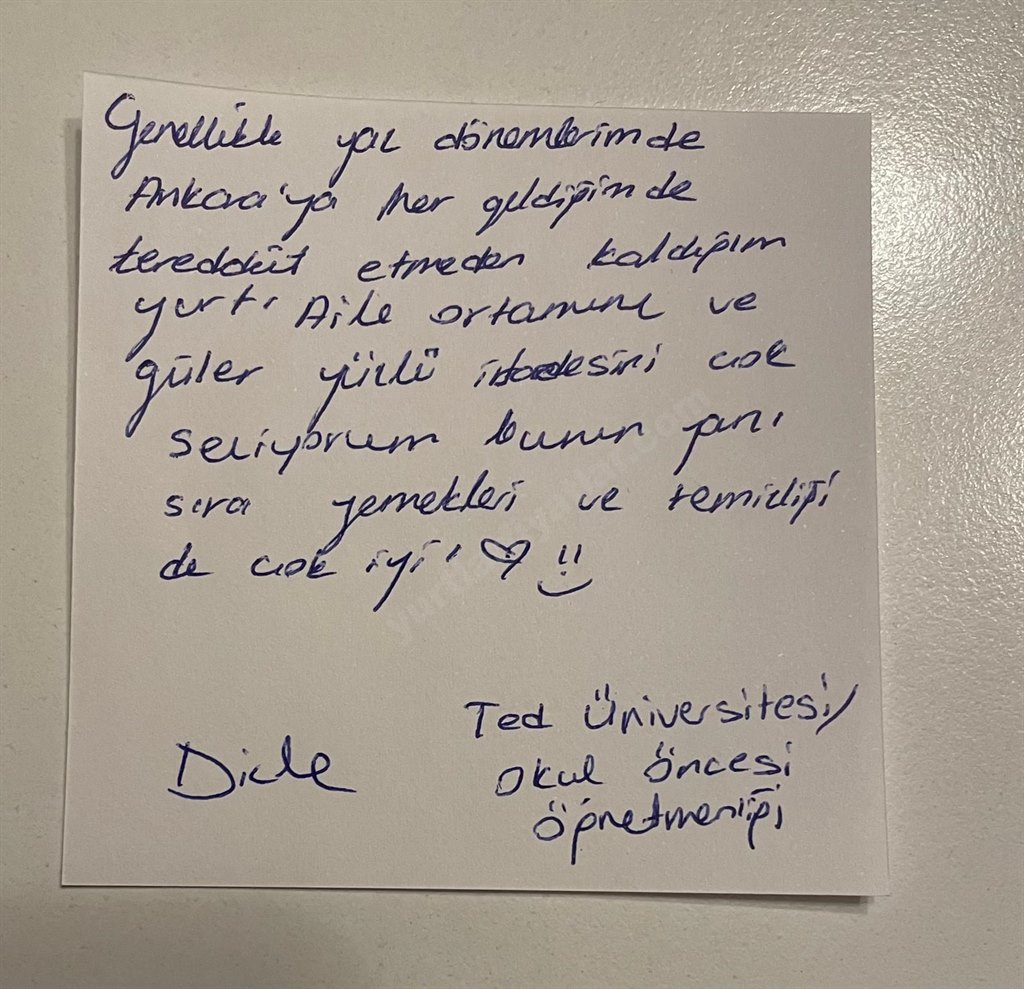 Genellikle yaz dönemlerimde
Ankara'ya her geldiğimde
tereddüt etmeden kaldığım
yurt. Aile ortamını ve
güler yüzlü idaresini çok
seviyorum bunun yanı
sıra yemekleri ve temizliği
de çok iyi!
Ted Üniversitesi/
Dicle
Okul Öncesi
Öğretmenliği